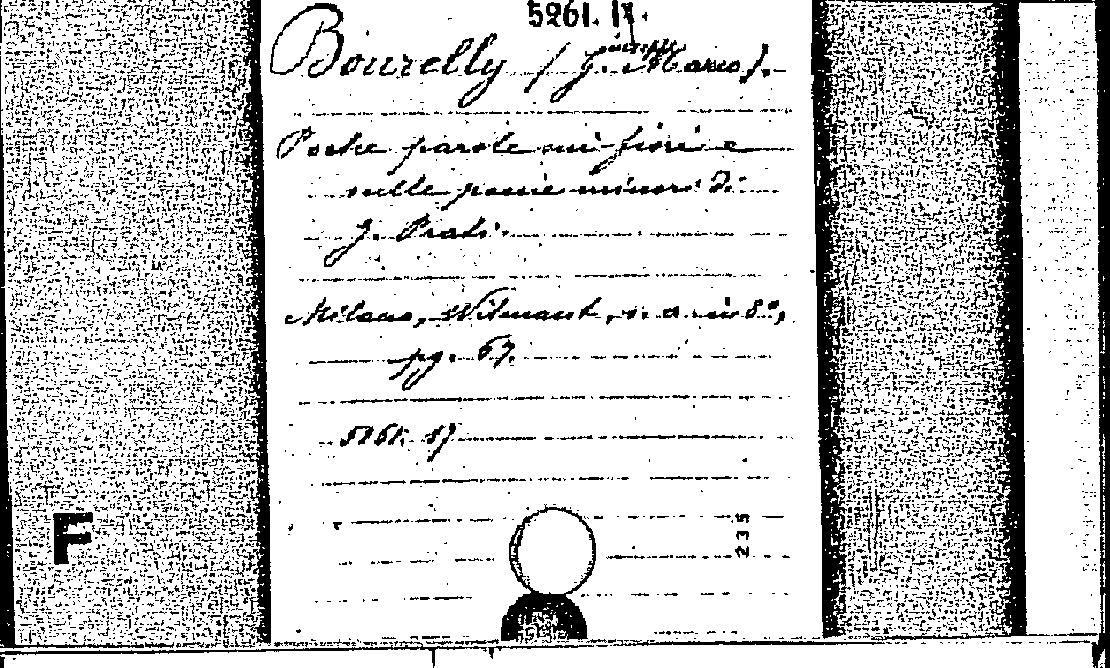 5261. 17.
Bourelly (G. Marco).
Poche parole sui fiori e
sulle poesie minori di
G. Prati.
Milano, Wilmant, s. a. in 8°,
pg. 67.
5261. 17
235
F